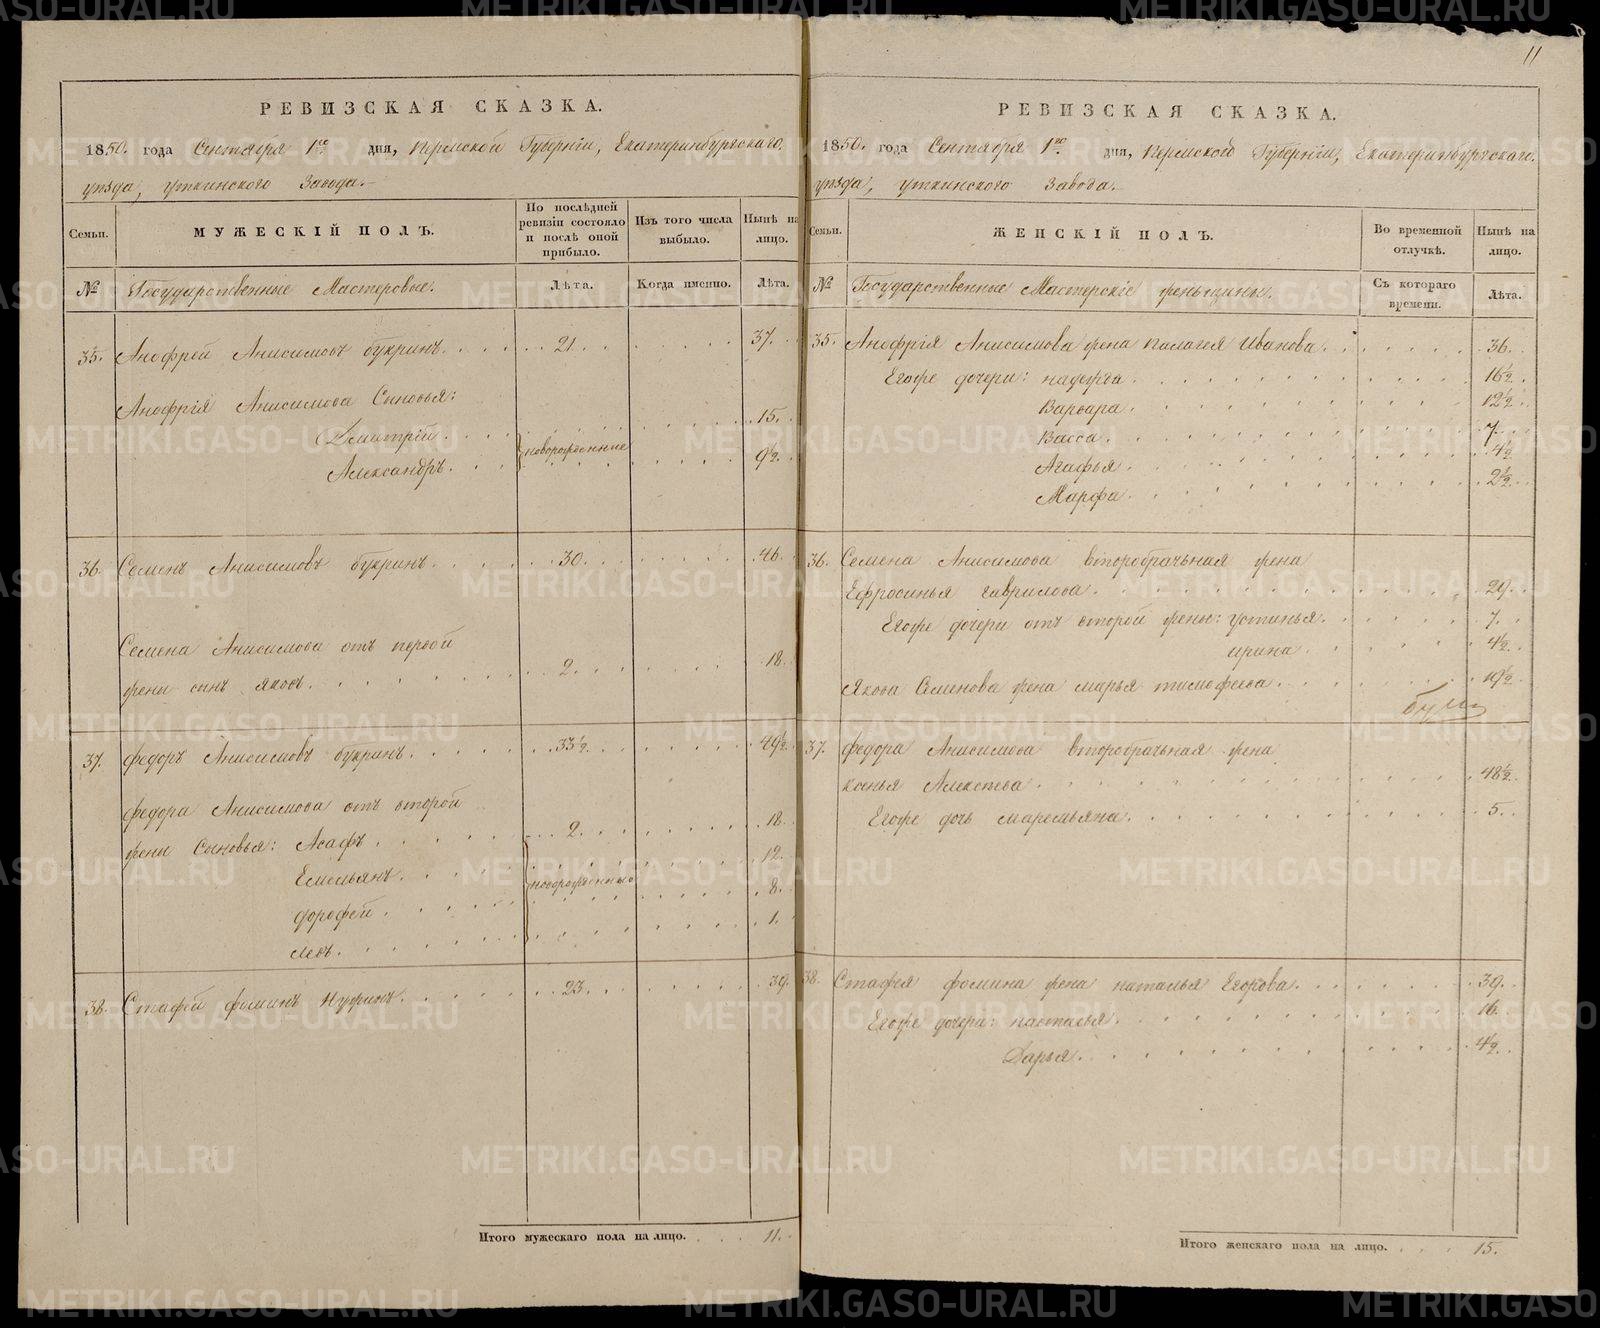 РЕВИЗСКАЯ СКАЗКА.
1850. года Сентября 1го дня, Пермской Губерніи, Екатеринбургскаго
уѣзда, уткинского Завода.
Семьи.
МУЖЕСКІЙ ПОЛЪ.
По послѣдней ревизіи состояло и послѣ оной прибыло.
Изъ того числа выбыло.
Нынѣ на лицо.
№
Государственные Мастеровые.
Лѣта.
Когда именно.
Лѣта.
35. Анофрей Анисимовъ букринъ. 21. 37.
Анофрія Анисимова Сыновья:
Дмитрій. 15.
новорожденные
Александръ. 9½.
36. Семенъ Анисимовъ букринъ. 30. 46.
Семена Анисимова отъ первой
жены сынъ яковъ. 2. 18.
37. федоръ Анисимовъ букринъ. 33½. 49½.
федора Анисимова отъ второй
жены Сыновья: Асафъ. 2. 18.
Емельянъ. 12.
новорожденные
дорофей. 8.
левъ. 1.
38. Стафей фоминъ 23. 39.
Итого мужескаго пола на лицо. 11.
11
РЕВИЗСКАЯ СКАЗКА.
1850. года Сентября 1го дня, Пермского Губерніи, Екатеринбургскаго
уѣзда, уткинского Завода.
Семьи.
ЖЕНСКІЙ ПОЛЪ.
Во временной отлучкѣ.
Нынѣ на лицо.
№
Государственные Мастерскіе женьщины.
Съ котораго времени.
Лѣта.
35. Анофрія Анисимова жена палагея Иванова. 36.
Егоже дочери: надежда. 16½.
Варвара. 12½.
Васса. 7.
Агафья. 4½.
Марфа. 2½.
36. Семена Анисимова второбрачьная жена
Ефросинья гаврилова. 29.
Егоже дочери отъ второй жены: устинья. 7.
ирина. 4½.
якова Семинова жена марья тимофеева. 19½.
37. федора Анисимова второбрачьная жена
ксенья Алексеева. 48½.
Егоже дочь маремьяна. 5.
38. Стафея фомина жена наталья Егорова. 39.
Егоже дочери: настасья. 16.
Дарья. 4½.
Итого женскаго пола на лицо. 15.
METRIKI.GASO-URAL.RU